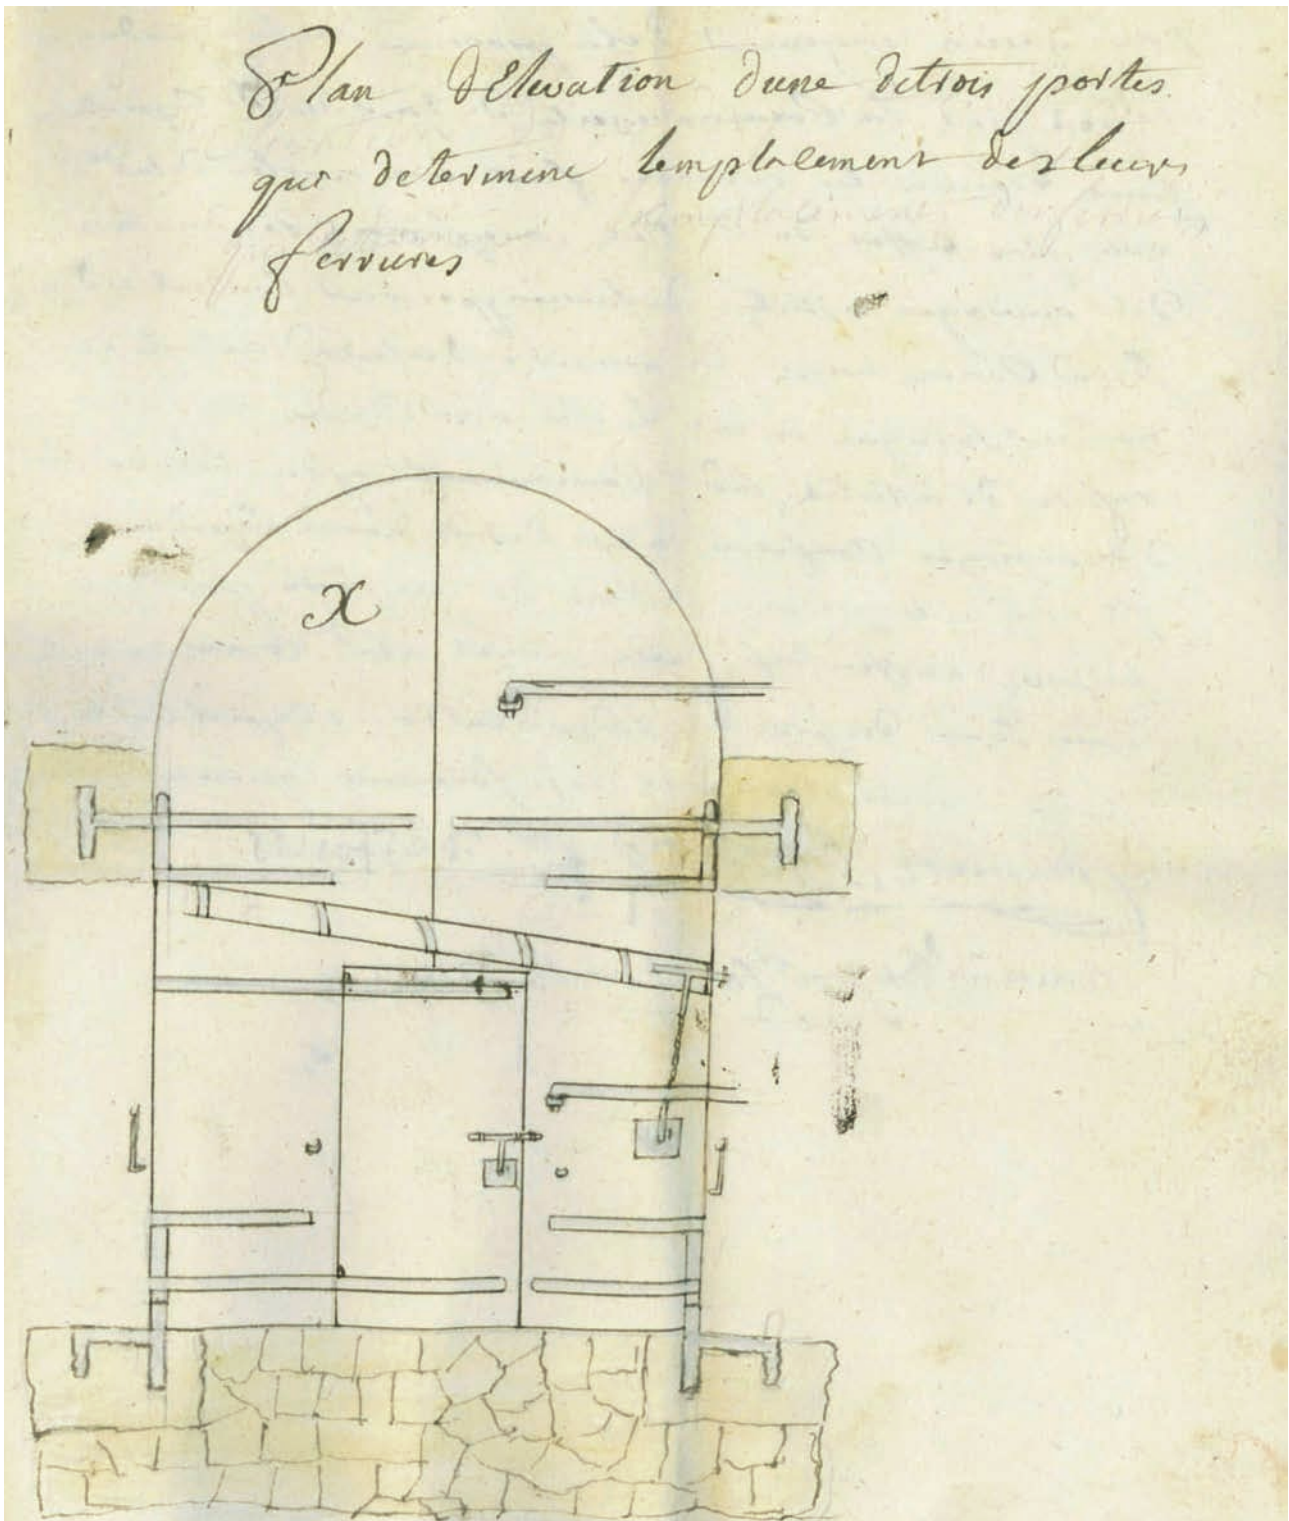 Plan dElevation dune detrois portes
qui determine lemplacement des leurs
ferrures
X